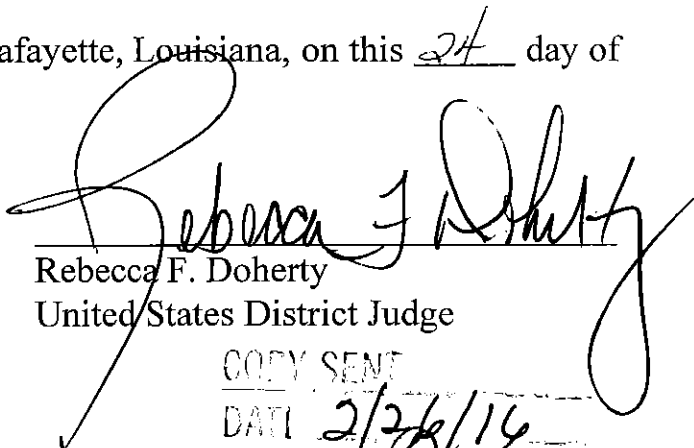 afayette, Louisiana, on this 24 day of
Rebecca F Doherty
Rebecca F. Doherty
United States District Judge
COPY SENT
DATE 2/26/16